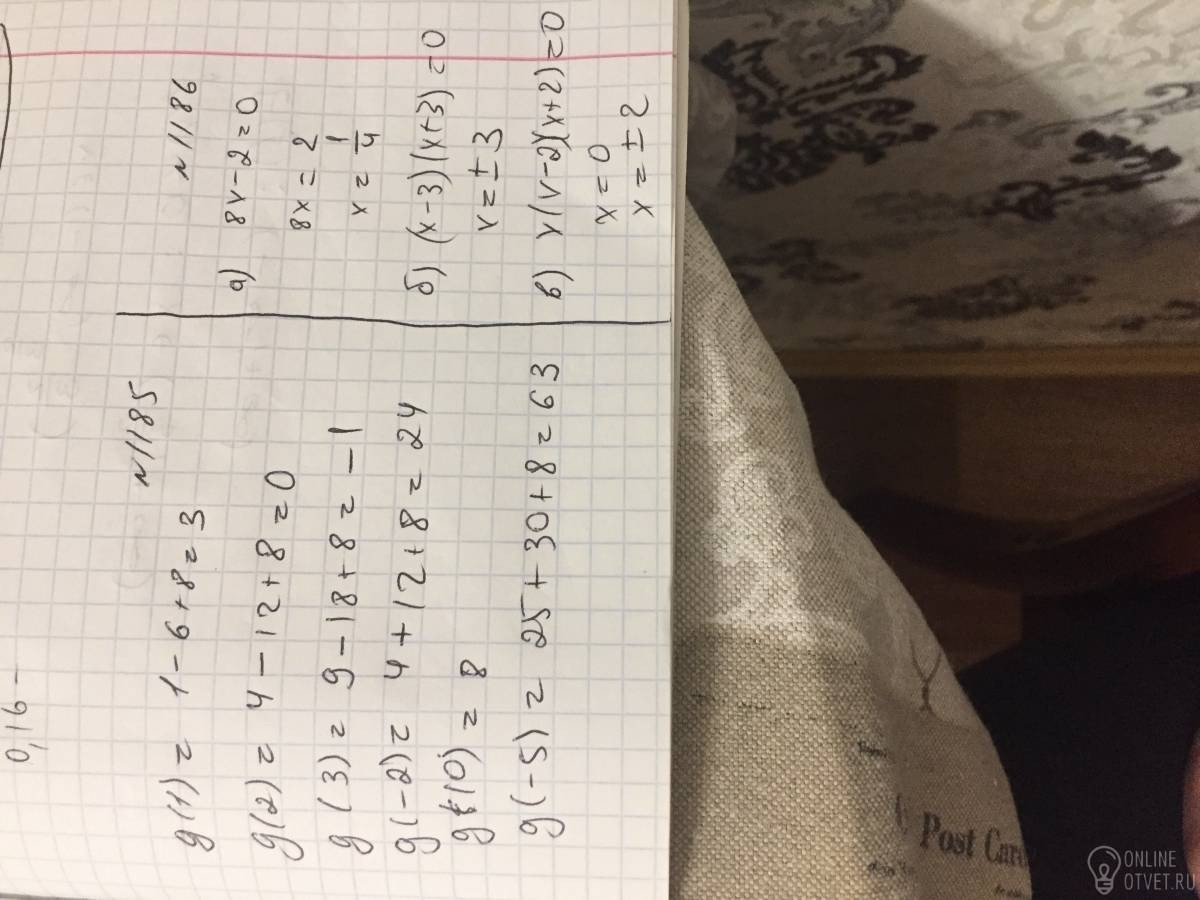 0,16 −
N1185
g(1) = 1 - 6 + 8 = 3
g(2) = 4 - 12 + 8 = 0
g(3) = 9 - 18 + 8 = -1
g(-2) = 4 + 12 + 8 = 24
g(0) = 8
g(-5) = 25 + 30 + 8 = 63
N1186
а) 8x - 2 = 0
8x = 2
x = 1/4
б) (x - 3)(x + 3) = 0
x = ± 3
в) x(x - 2)(x + 2) = 0
x = 0
x = ± 2
Post Card
ONLINE
OTVET.RU